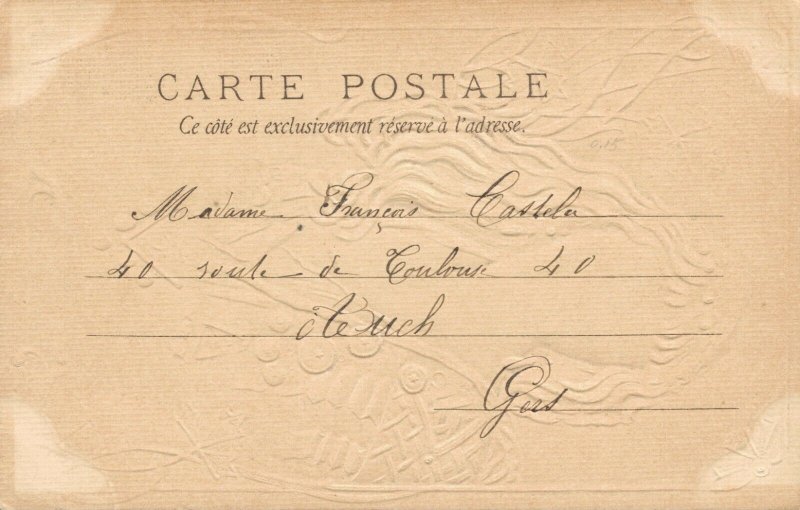 CARTE POSTALE
Ce côté est exclusivement réservé à l'adresse.
0.15
Madame François Castela
40 route de Toulouse 40
Auch
Gers